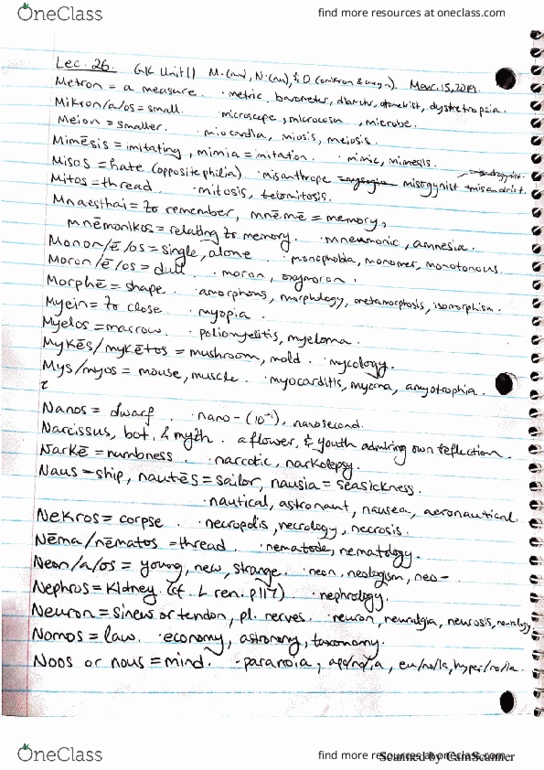 OneClass
find more resources at oneclass.com
Lec. 26. GK Unit 11 M-(mu), N-(nu), & O (omikron & omega). Mar. 15, 2019
Metron = a measure. · metric, barometer, diameter, optometrist,
Mikron/a/os = small. · microscope, microcosm, microbe.
Meion = smaller. · miocardia, miosis, meiosis.
Mimēsis = imitating, mimia = imitation. · mimic, mimesis.
Misos = hate (opposite philia) · misanthrope misogynist misandrist.
Mitos = thread. · mitosis,
Mnaesthai = to remember, mnēmē = memory,
mnēmonikos = relating to memory. · mnemonic, amnesia.
Monon/ē/os = single, alone. · monophobia, monomer, monotonous.
Moron/ē/os = dull. · moron, oxymoron.
Morphē = shape. · amorphous, morphology, metamorphosis, isomorphism.
Myein = to close. · myopia.
Myelos = marrow. · poliomyelitis, myeloma.
Mykēs/mykētos = mushroom, mold. · mycology.
Mys/myos = mouse, muscle. · myocarditis, myoma, amyotrophia.
Nanos = dwarf. · nano- nanosecond.
Narcissus, bot. & myth. a flower, & youth admiring own reflection.
Narkē = numbness. · narcotic, narkolepsy.
Naus = ship, nautēs = sailor, nausia = seasickness.
· nautical, astronaut, nausea, aeronautical.
Nekros = corpse. · necropolis, necrology, necrosis.
Nēma/nēmatos = thread. · nematode, nematology.
Neon/a/os = young, new, strange. · neon, neologism, neo-
Nephros = Kidney. (cf. L ren. p117) · nephrology.
Neuron = sinew or tendon, pl. nerves. · neuron, neuralgia, neurosis, neurology
Nomos = law. · economy, astronomy, taxonomy.
Noos or nous = mind. · paranoia, apo/no/ia, eu/no/ia, hyper/no/ia.
OneClass
find more resources at oneclass.com
Scanned by CamScanner